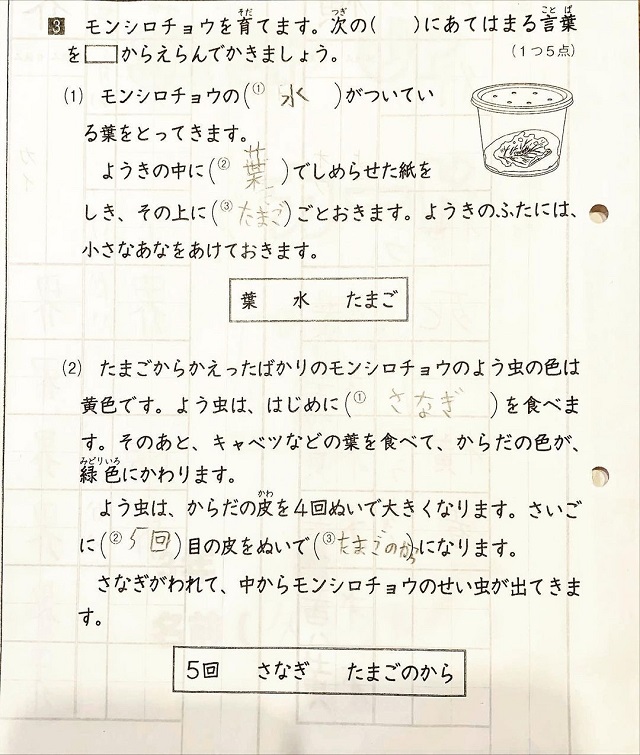 3 モンシロチョウを育てます。次の(　　)にあてはまる言葉
を□からえらんでかきましょう。（1つ5点）
(1) モンシロチョウの(① 水 )がついてい
る葉をとってきます。
ようきの中に(② 葉 )でしめらせた紙を
しき、その上に(③ たまご)ごとおきます。ようきのふたには、
小さなあなをあけておきます。
葉　水　たまご
(2) たまごからかえったばかりのモンシロチョウのよう虫の色は
黄色です。よう虫は、はじめに(① さなぎ )を食べま
す。そのあと、キャベツなどの葉を食べて、からだの色が、
緑色にかわります。
よう虫は、からだの皮を4回ぬいで大きくなります。さいご
に(② 5回 )目の皮をぬいで(③たまごのから)になります。
さなぎがわれて、中からモンシロチョウのせい虫が出てきま
す。
5回　さなぎ　たまごのから